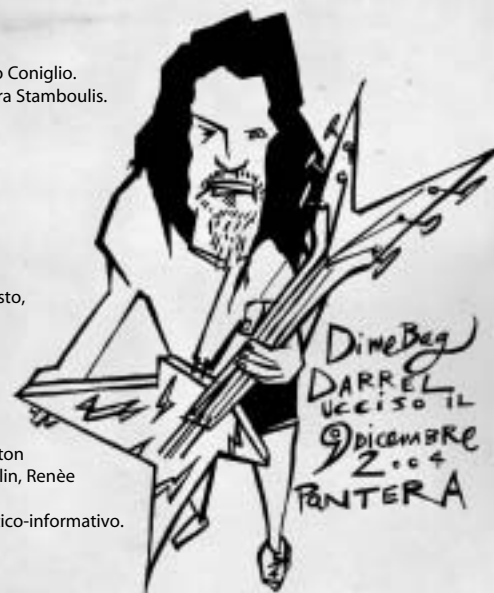 o Coniglio.
ra Stamboulis.
sto,
ton
lin, Renèe
tico-informativo.
DimeBag
DARREL
UCCISO IL
9 DICEMBRE
2004
PANTERA